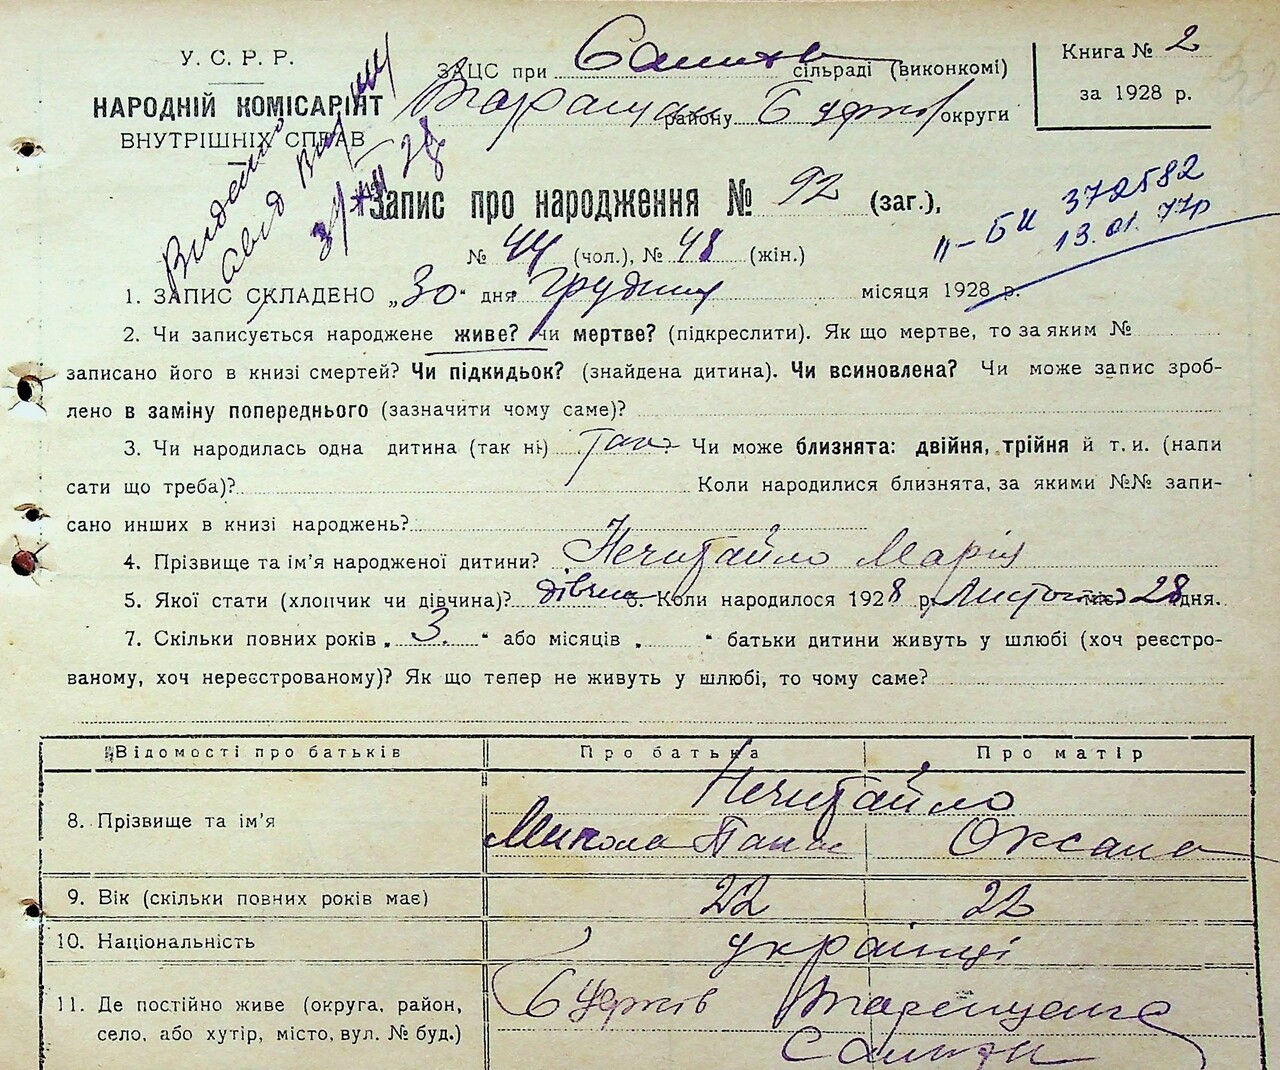 У. С. Р. Р.
НАРОДНІЙ КОМІСАРІЯТ
ВНУТРІШНІХ СПРАВ
ЗАЦС при сільраді (виконкомі)
району округи
Книга № 2
за 1928 р.
Видено
Запис про народження № 92 (заг.),
№ 44 (чол.), № 48 (жін.)
II – БК 372582
13.01.77р
1. ЗАПИС СКЛАДЕНО „30“ дня грудня місяця 1928 р.
2. Чи записується народжене живе? чи мертве? (підкреслити). Як що мертве, то за яким №
записано його в книзі смертей? Чи підкидьок? (знайдена дитина). Чи всиновлена? Чи може запис зроб-
лено в заміну попереднього (зазначити чому саме)?
3. Чи народилась одна дитина (так ні) так Чи може близнята: двійня, трійня й т. и. (напи
сати що треба)? Коли народилися близнята, за якими №№ запи-
сано инших в книзі народжень?
4. Прізвище та ім'я народженої дитини? Нечитайло Марія
5. Якої стати (хлопчик чи дівчина)? дівчин 6. Коли народилося 1928 р. міс. 28 дня.
7. Скільки повних років „3.“ або місяців „ “ батьки дитини живуть у шлюбі (хоч реєстро-
ваному, хоч нереєстрованому)? Як що тепер не живуть у шлюбі, то чому саме?
Відомості про батьків Про батька Про матір
8. Прізвище та ім'я Нечитайло
Микола Панас Оксана
9. Вік (скільки повних років має) 22 22
10. Національність українці
11. Де постійно живе (округа, район,
село, або хутір, місто, вул. № буд.)